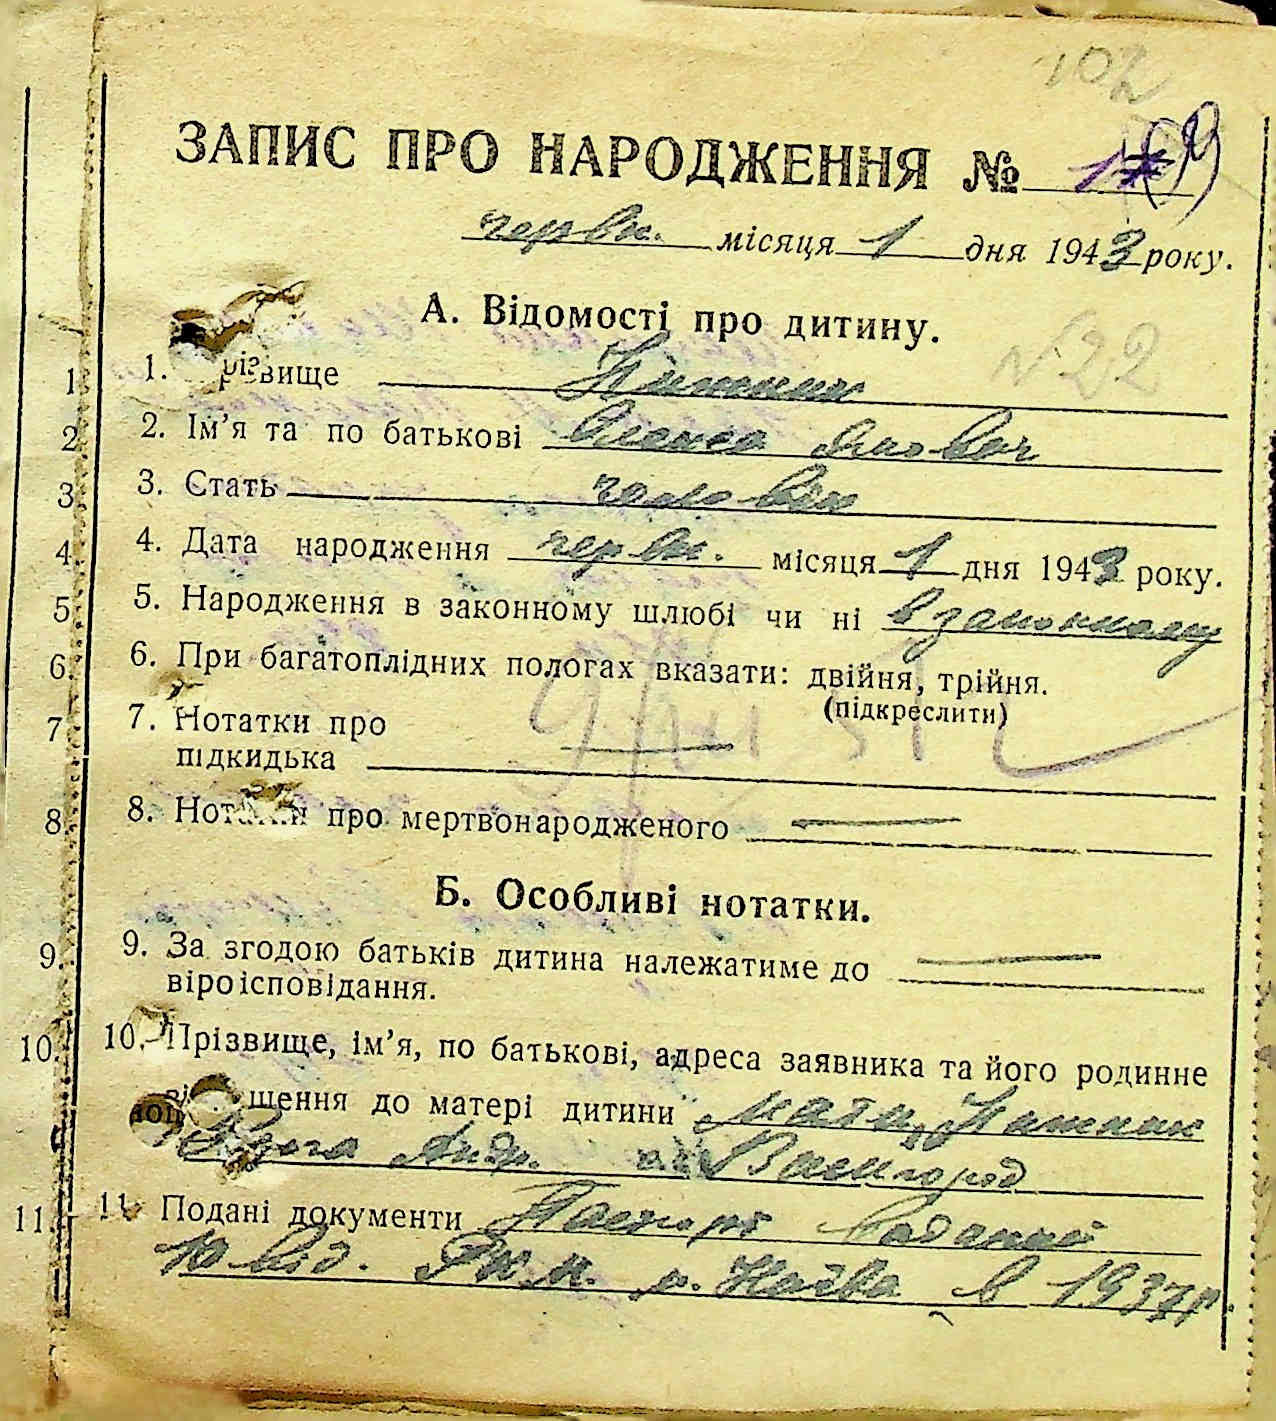 102
ЗАПИС ПРО НАРОДЖЕННЯ №
червн. місяця 1 дня 1943 року.
А. Відомості про дитину.
№22
1. 1. різвище
2. 2. Ім'я та по батькові Олекса
3. 3. Стать чоловік
4. 4. Дата народження червн. місяця 1 дня 1943 року.
5. 5. Народження в законному шлюбі чи ні в законному
6. 6. При багатоплідних пологах вказати: двійня, трійня.
(підкреслити)
7. 7. Нотатки про
підкидька
8. 8. Нотатки про мертвонародженого
Б. Особливі нотатки.
9. 9. За згодою батьків дитина належатиме до
віроісповідання.
10. 10. Прізвище, ім'я, по батькові, адреса заявника та його родинне
щення до матері дитини мати,
Андр.
11. 11. Подані документи Паспорт виданий
10 від. Р.К.М. м. Київа в 1937 р.